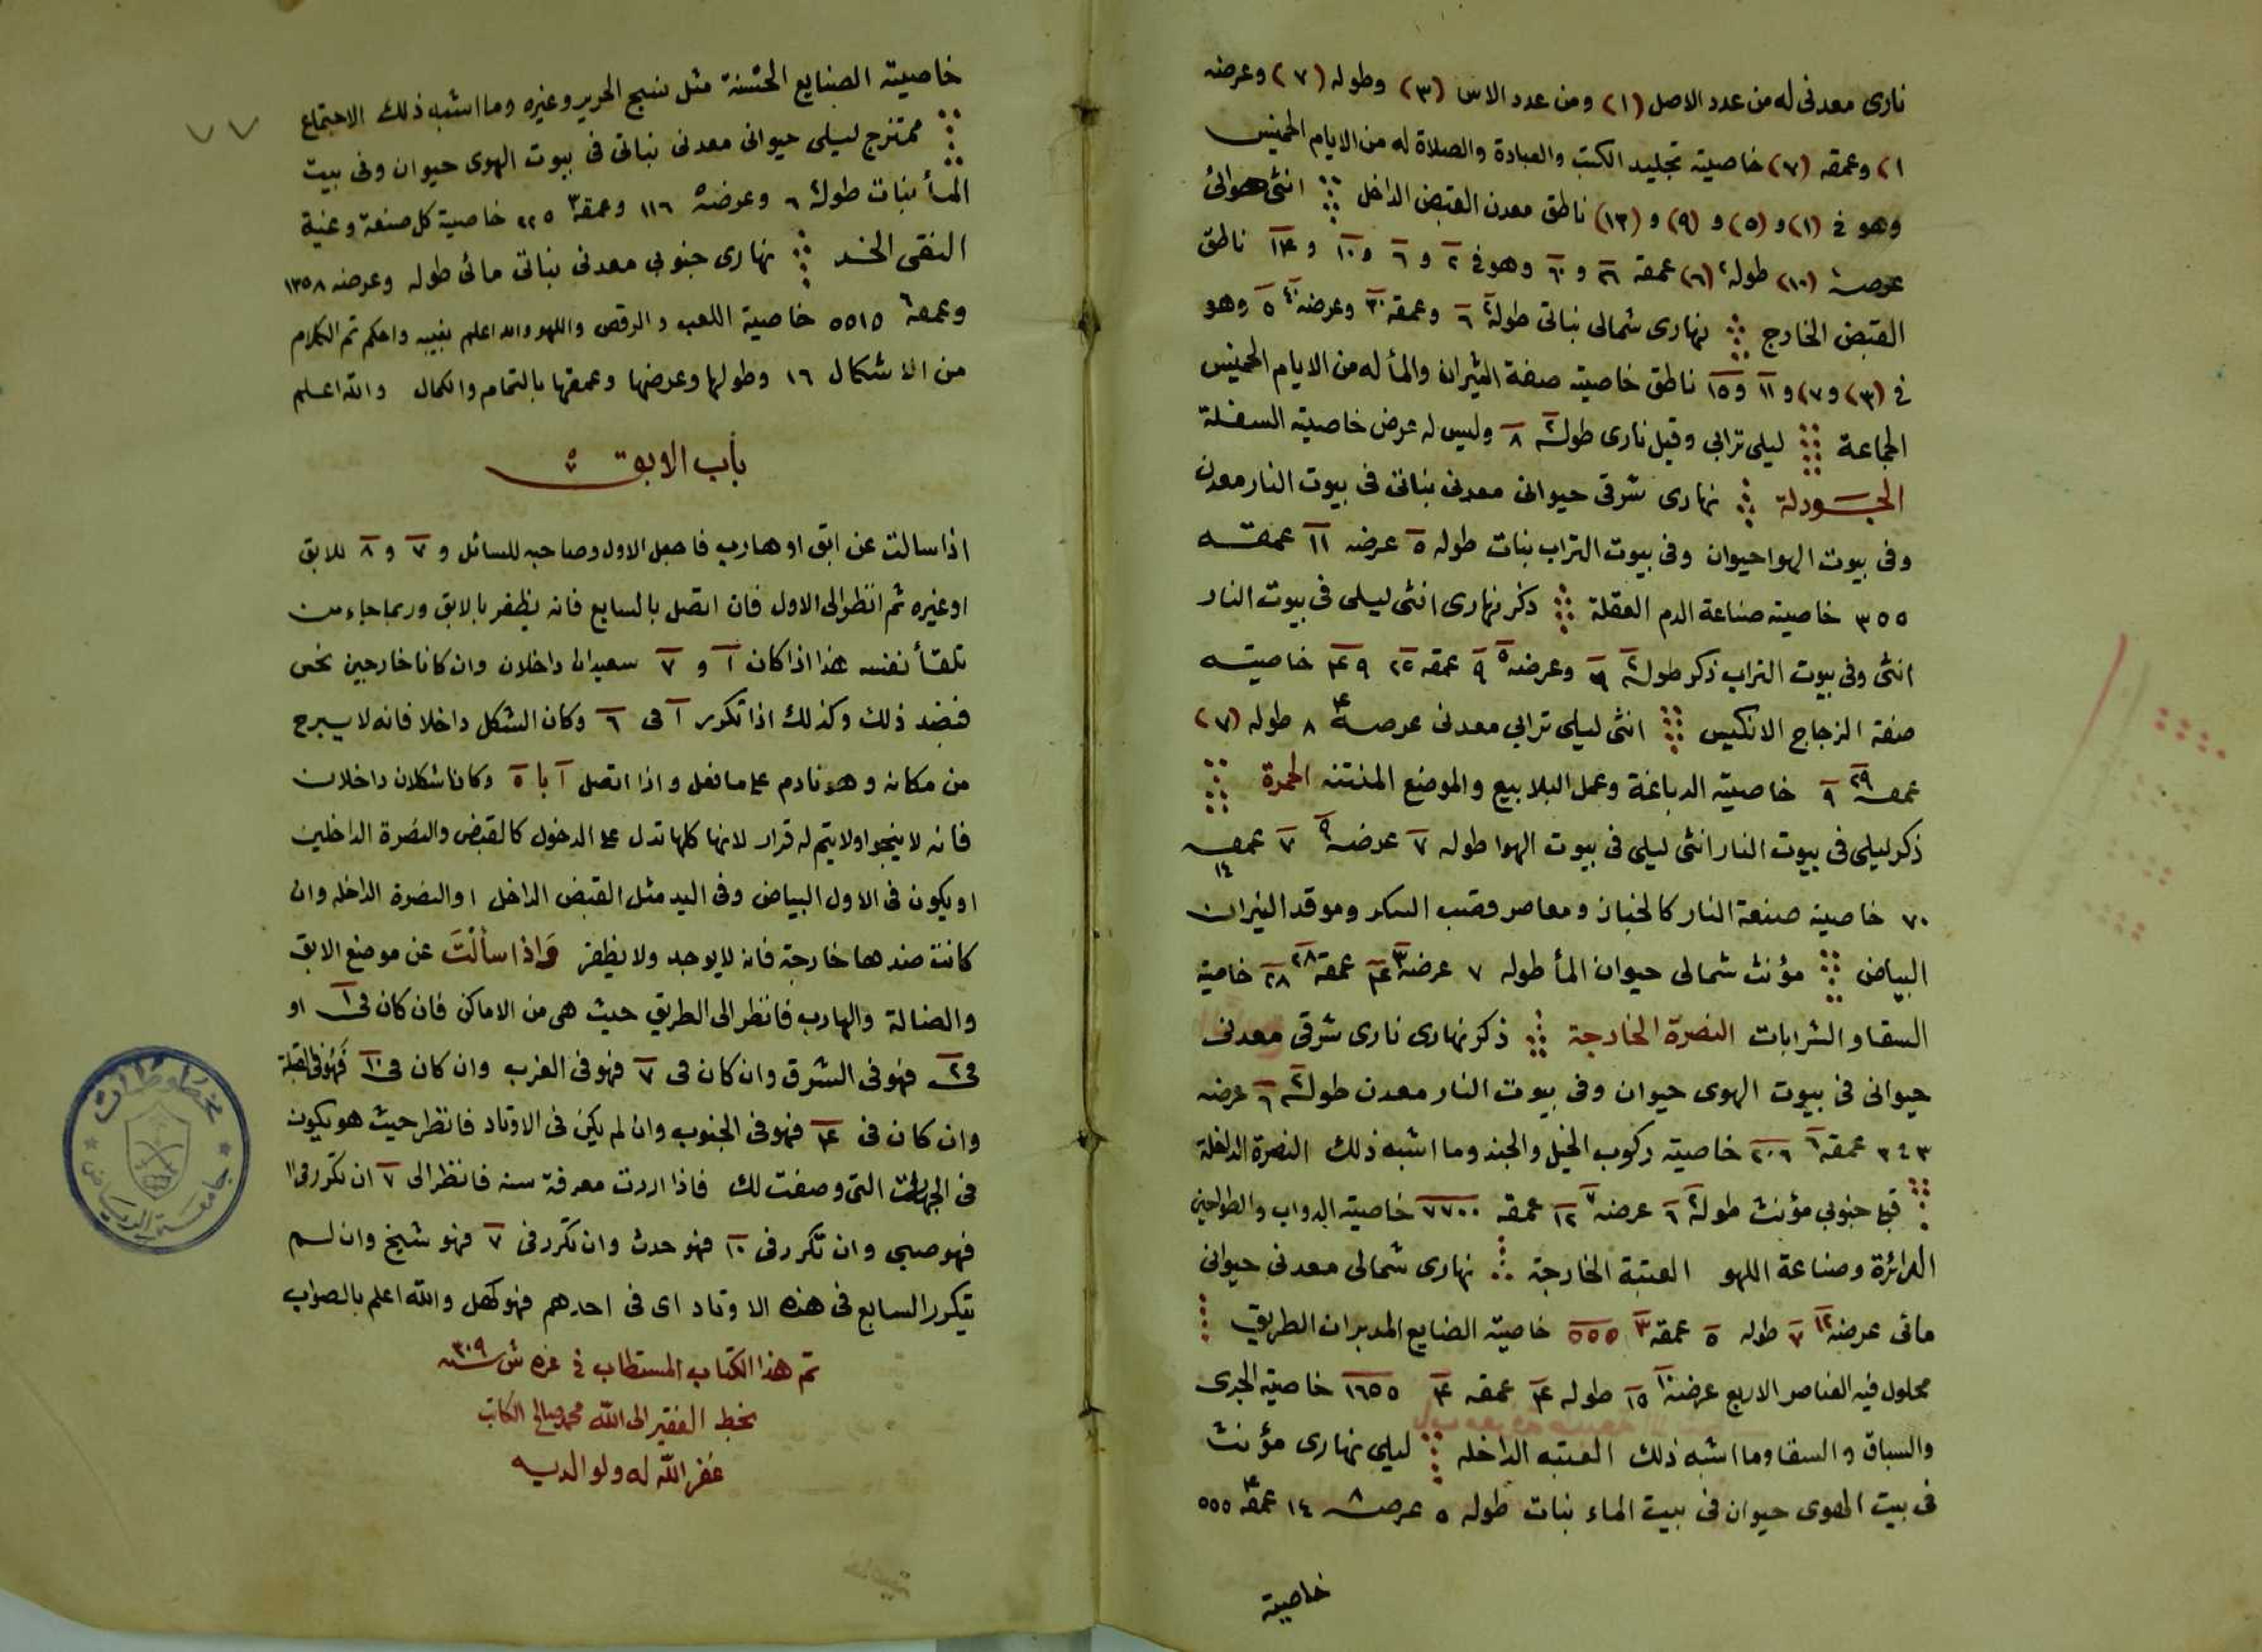 نارى معدنى له من عدد الاصل (١) ومن عدد الاس (٣) وطوله (٧) وعرضه
١) وعمقه (٧) خاصيته تجليد الكتب والعبادة والصلاة له من الايام الخميس
وهو في (١) و (٥) و (٩) و (١٣) ناطق معدن القبض الداخل انثى هوائى
عرضه (١٠) طوله (٦) عمقه و ٦٠ وهو في ٢ و ٦ و ١٠ و ١٤ ناطق
القبض الخارج نهارى شمالى نباتى طوله ٦ وعمقه ٣٠ وعرضه ٥ وهو
في (٣) و ٧) و ١١ و ١٥ ناطق خاصيته صفة النيران والمأ له من الايام الخميس
الجماعة ليلى ترابى وقيل نارى طوله ٨ وليس له عرض خاصيته السفلة
الجودلة نهارى شرقى حيوانى معدنى نباتى فى بيوت النار معدن
وفى بيوت الهوا حيوان وفى بيوت التراب بنات طوله ٥ عرضه ١١ عمقه
٣٥٥ خاصيته صناعة الدم العقلة ذكر نهارى انثى ليلى فى بيوت النار
انثى وفى بيوت التراب ذكر طوله وعرضه ٩ عمقه ٢٥ ٤٩ خاصيته
صفة الزجاج الانكيس انثى ليلى ترابى معدنى عرضه ٨ طوله (٧)
عمقه ٢٩ ٩ خاصيته الدباغة وعمل البلابيع والموضع المنتنه الحمرة
ذكر ليلى فى بيوت النار انثى ليلى فى بيوت الهوا طوله ٧ عرضه ٧ عمقه
١٤
٧٠ خاصيته صنعة النار كالخباز ومعاصر قصب السكر وموقد النيران
البياض مؤنث شمالى حيوان المأ طوله ٧ عرضه عمقه ٢٨ ٢٨ خاصية
السقا والشرابات النصرة الخارجة ذكر نهارى نارى شرقى معدنى
حيوانى فى بيوت الهوى حيوان وفى بيوت النار معدن طوله ٦ عرضه
٣٤٣ عمقه ٢٠٦ خاصيته ركوب الخيل والجند وما اشبه ذلك النصرة الداخلة
جنوبى مؤنث طوله ٦ عرضه ١٢ عمقه ٧٧٠٠ خاصيته الدواب والطواحين
الدائرة وصناعة اللهو العتبة الخارجة نهارى شمالى معدنى حيوانى
مائى عرضه ١٢ ٧ طوله ٥ عمقه ٣ ٥٥٥ خاصيته الصنايع المدبران الطريق
محلول فيه العناصر الاربع عرضه ١٥ طوله ٤ عمقه ٤ ١٦٥٥ خاصيته الجرى
والسباق والسقا وما اشبه ذلك العتبه الداخله ليلى نهارى مؤنث
فى بيت الهوى حيوان فى بيت الماء نبات طوله ٥ عرضه ٨ ١٤ عمقه ٥٥٥
خاصيته
٧٧
خاصيته الصنايع الخشنة مثل نسج الحرير وغيره وما اشبه ذلك الاجتماع
ممتزج ليلى حيوانى معدنى نباتى فى بيوت الهوى حيوان وفى بيت
المأ نبات طوله ٦ وعرضه ١١٦ وعمقه ٣ ٢٢٥ خاصية كل صنعة وغنية
النقى الخد نهارى جنوبى معدنى نباتى مائى طوله وعرضه ١٣٥٨
وعمقه ٦ ٥٥١٥ خاصية اللعب والرقص واللهو والله اعلم بغيبه واحكم تم الكلام
من الاشكال ١٦ وطولها وعرضها وعمقها بالتمام والكمال والله اعلم
باب الابق
اذا سالت عن ابق او هارب فاجعل الاول وصاحبه للسائل و ٧ و ٨ للابق
او غيره ثم انظر الى الاول فان اتصل بالسابع فانه يظفر بالابق وربما جاء من
تلقأ نفسه هذا اذا كان ١ و ٧ سعيدان داخلان وان كانا خارجين نحس
فبضد ذلك وكذلك اذا تكرر ١ فى ٦ وكان الشكل داخلا فانه لا يبرح
من مكانه وهو نادم على ما فعل واذا اتصل ١ با ٥ وكانا شكلان داخلان
فانه لا ينجوا ولا يتم له قرار لانها كلها تدل على الدخول كالقبض والنصرة الداخلين
او يكون فى الاول البياض وفى اليد مثل القبض الداخل او النصرة الداخله وان
كانت ضدها خارجة فانه لا يوجد ولا يظفر وَاذا سألْتَ عن موضع الابق
والضالة والهارب فانظر الى الطريق حيث هى من الاماكن فان كان فى ١ او
فى ٢ فهو فى الشرق وان كان فى ٧ فهو فى الغرب وان كان فى ١٠ فهو فى القبلة
وان كان فى ٤ فهو فى الجنوب وان لم يكن فى الاوتاد فانظر حيث هو يكون
فى الجهات التى وصفت لك فاذا اردت معرفة سنه فانظر الى ٧ ان تكرر فى ١
فهو صبى وان تكرر فى ١٠ فهو حدث وان تكرر فى ٧ فهو شيخ وان لم
يتكرر السابع فى هذه الاوتاد اى فى احدهم فهو كهل والله اعلم بالصواب
تم هذا الكتاب المستطاب فى غره ش سنه ٣٠٩
بخط الفقير الى الله محمد صالح الكاتب
غفر الله له ولوالديه
مخطوطات
جامعة الرياض